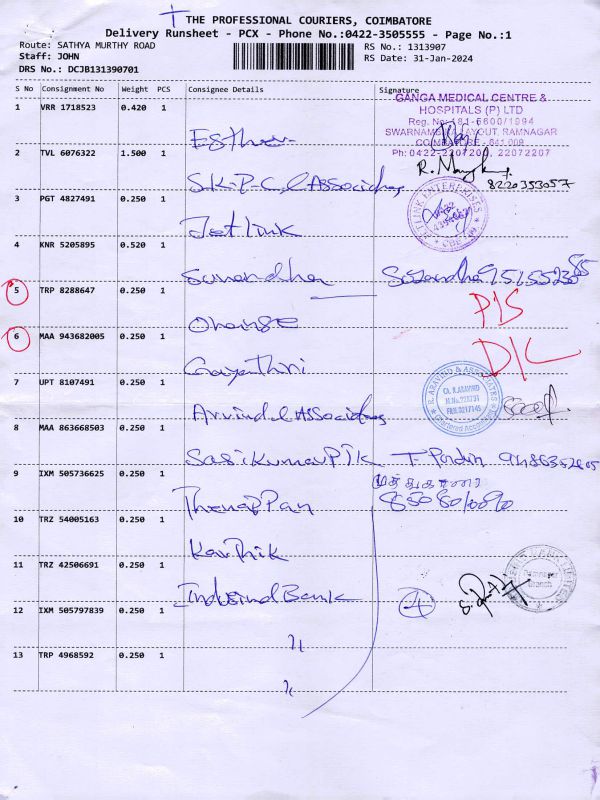 THE PROFESSIONAL COURIERS, COIMBATORE
Delivery Runsheet - PCX - Phone No.:0422-3505555 - Page No.:1
Route: SATHYA MURTHY ROAD
RS No.: 1313907
Staff: JOHN
RS Date: 31-Jan-2024
DRS No.: DCJB131390701
S No Consignment No Weight PCS Consignee Details Signature
GANGA MEDICAL CENTRE &
HOSPITALS (P) LTD
Reg. No: 181-6600/1994
SWARNAMBIKA LAYOUT, RAMNAGAR
COIMBATORE - 641 009
Ph: 0422-2207200, 22072207
1 VRR 1718523 0.420 1 Esther
2 TVL 6076322 1.500 1 S.K.P.C. & Associates
8220353057
3 PGT 4827491 0.250 1 Jetlink
JETLINK ENTERPRISES
4 KNR 5205895 0.520 1 Sunandha
5 TRP 8288647 0.250 1 Orange
P/S
6 MAA 943682005 0.250 1 Gayathiri
D/L
7 UPT 8107491 0.250 1 Arvind & Associates
R. ARAVIND & ASSOCIATES
CA. R.ARAVIND
Chartered Accountants
8 MAA 863668503 0.250 1 Sasikumar
9 IXM 505736625 0.250 1 Thenappan
10 TRZ 54005163 0.250 1 Karthik
11 TRZ 42506691 0.250 1 Indusind Bank
4
Branch
12 IXM 505797839 0.250 1 "
13 TRP 4968592 0.250 1 "